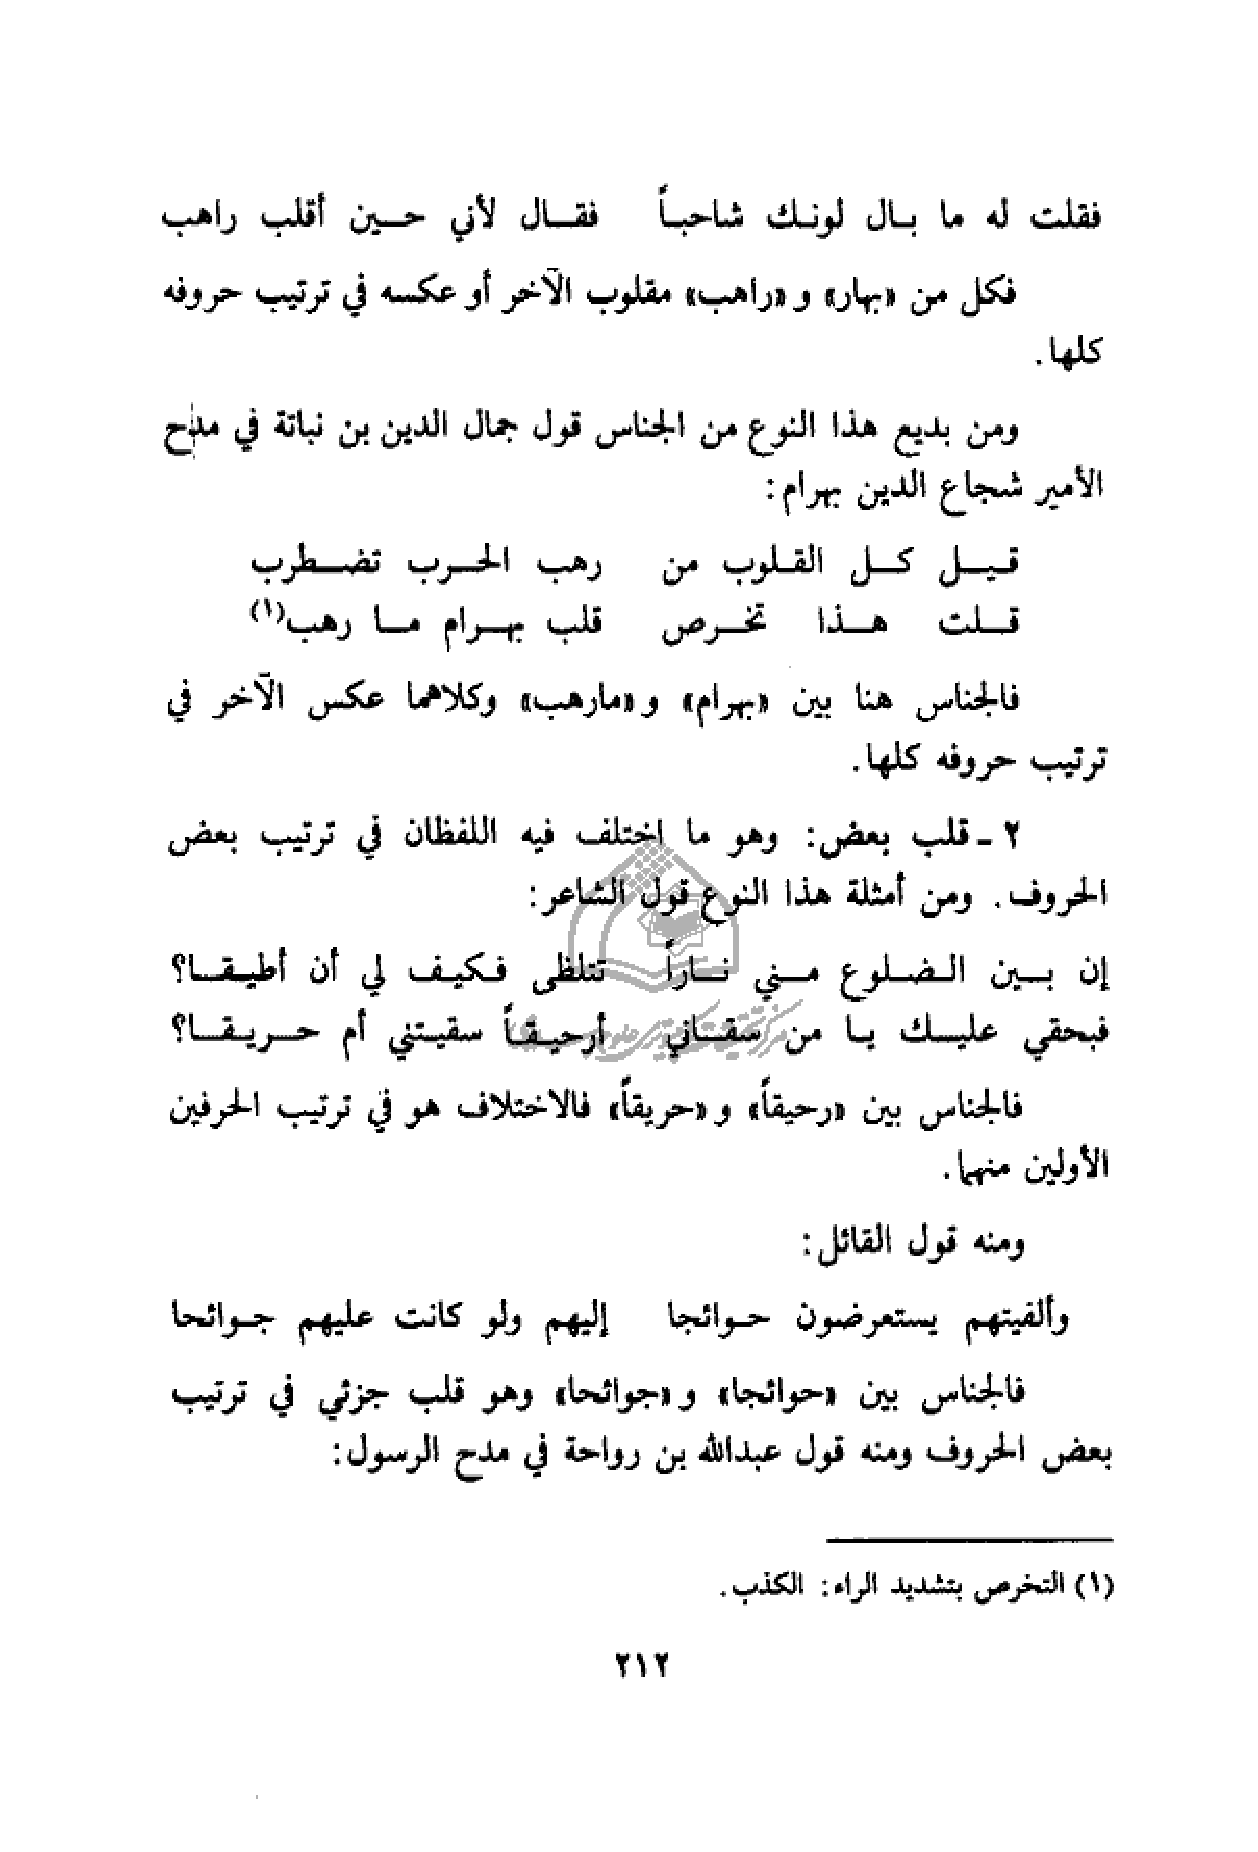 فقلت له ما بال لونك شاحباً فقال لأني حين أقلب راهب
فكل من «بهار» و «راهب» مقلوب الآخر أو عكسه في ترتيب حروفه
كلها.
ومن بديع هذا النوع من الجناس قول جمال الدين بن نباتة في مدح
الأمير شجاع الدين بهرام:
قيل كل القلوب من رهب الحرب تضطرب
قلت هذا تخرص قلب بهرام ما رهب(١)
فالجناس هنا بين «بهرام» و «مارهب» وكلاهما عكس الآخر في
ترتيب حروفه كلها.
٢ - قلب بعض: وهو ما اختلف فيه اللفظان في ترتيب بعض
الحروف. ومن أمثلة هذا النوع قول الشاعر:
إن بين الضلوع مني ناراً تتلظى فكيف لي أن أطيقا؟
فبحقي عليك يا من سقاني أرحيقاً سقيتني أم حريقا؟
فالجناس بين «رحيقاً» و «حريقاً» فالاختلاف هو في ترتيب الحرفين
الأولين منهما.
ومنه قول القائل:
وألفيتهم يستعرضون حوائجا إليهم ولو كانت عليهم جوائحا
فالجناس بين «حوائجا» و «جوائحا» وهو قلب جزئي في ترتيب
بعض الحروف ومنه قول عبدالله بن رواحة في مدح الرسول:
(١) التخرص بتشديد الراء: الكذب.
٢١٢